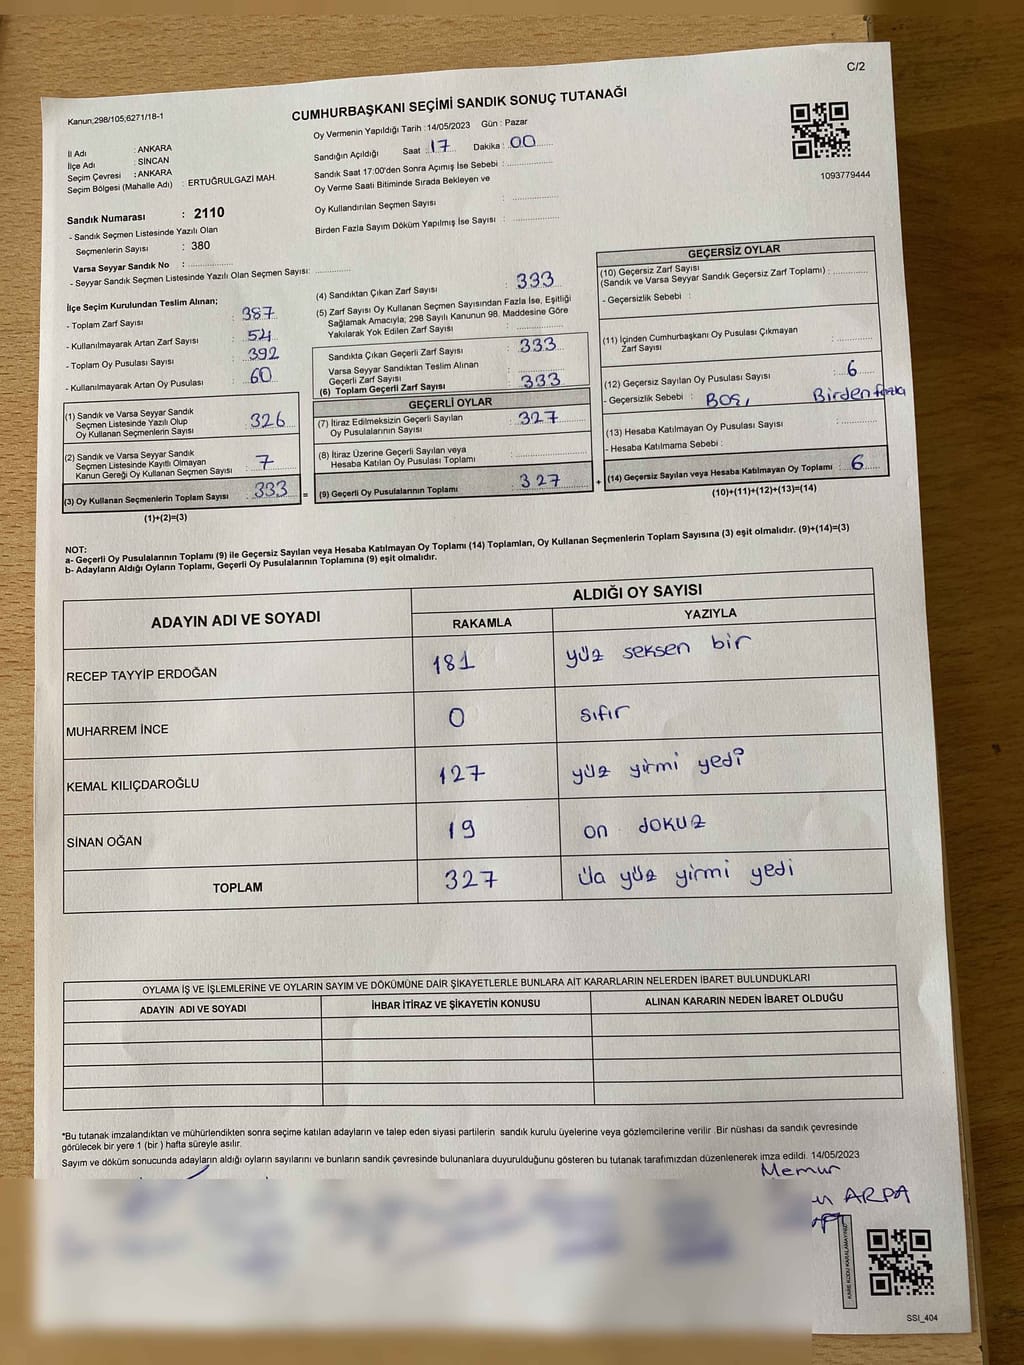 C/2
Kanun;298/105;6271/18-1
CUMHURBAŞKANI SEÇİMİ SANDIK SONUÇ TUTANAĞI
Oy Vermenin Yapıldığı Tarih : 14/05/2023 Gün : Pazar
İl Adı : ANKARA
İlçe Adı : SİNCAN
Seçim Çevresi : ANKARA
Seçim Bölgesi (Mahalle Adı) : ERTUĞRULGAZİ MAH.
Sandığın Açıldığı Saat : 17 Dakika : 00
Sandık Saat 17:00'den Sonra Açımış İse Sebebi :
Oy Verme Saati Bitiminde Sırada Bekleyen ve
Oy Kullandırılan Seçmen Sayısı :
Birden Fazla Sayım Döküm Yapılmış İse Sayısı :
1093779444
Sandık Numarası : 2110
- Sandık Seçmen Listesinde Yazılı Olan
Seçmenlerin Sayısı : 380
Varsa Seyyar Sandık No :
- Seyyar Sandık Seçmen Listesinde Yazılı Olan Seçmen Sayısı:
İlçe Seçim Kurulundan Teslim Alınan;
- Toplam Zarf Sayısı : 387
- Kullanılmayarak Artan Zarf Sayısı : 54
- Toplam Oy Pusulası Sayısı : 392
- Kullanılmayarak Artan Oy Pusulası : 60
(1) Sandık ve Varsa Seyyar Sandık
Seçmen Listesinde Yazılı Olup
Oy Kullanan Seçmenlerin Sayısı : 326
(2) Sandık ve Varsa Seyyar Sandık
Seçmen Listesinde Kayıtlı Olmayan
Kanun Gereği Oy Kullanan Seçmen Sayısı : 7
(3) Oy Kullanan Seçmenlerin Toplam Sayısı : 333 =
(1)+(2)=(3)
(4) Sandıktan Çıkan Zarf Sayısı : 333
(5) Zarf Sayısı Oy Kullanan Seçmen Sayısından Fazla İse, Eşitliği
Sağlamak Amacıyla; 298 Sayılı Kanunun 98. Maddesine Göre
Yakılarak Yok Edilen Zarf Sayısı :
Sandıkta Çıkan Geçerli Zarf Sayısı : 333
Varsa Seyyar Sandıktan Teslim Alınan
Geçerli Zarf Sayısı :
(6) Toplam Geçerli Zarf Sayısı : 333
GEÇERLİ OYLAR
(7) İtiraz Edilmeksizin Geçerli Sayılan
Oy Pusulalarının Sayısı : 327
(8) İtiraz Üzerine Geçerli Sayılan veya
Hesaba Katılan Oy Pusulası Toplamı :
(9) Geçerli Oy Pusulalarının Toplamı : 327 +
GEÇERSİZ OYLAR
(10) Geçersiz Zarf Sayısı
(Sandık ve Varsa Seyyar Sandık Geçersiz Zarf Toplamı) :
- Geçersizlik Sebebi :
(11) İçinden Cumhurbaşkanı Oy Pusulası Çıkmayan
Zarf Sayısı :
(12) Geçersiz Sayılan Oy Pusulası Sayısı : 6
- Geçersizlik Sebebi : Boş, Birden fazla
(13) Hesaba Katılmayan Oy Pusulası Sayısı :
- Hesaba Katılmama Sebebi :
(14) Geçersiz Sayılan veya Hesaba Katılmayan Oy Toplamı : 6
(10)+(11)+(12)+(13)=(14)
NOT:
a- Geçerli Oy Pusulalarının Toplamı (9) ile Geçersiz Sayılan veya Hesaba Katılmayan Oy Toplamı (14) Toplamları, Oy Kullanan Seçmenlerin Toplam Sayısına (3) eşit olmalıdır. (9)+(14)=(3)
b- Adayların Aldığı Oyların Toplamı, Geçerli Oy Pusulalarının Toplamına (9) eşit olmalıdır.
ADAYIN ADI VE SOYADI ALDIĞI OY SAYISI
RAKAMLA YAZIYLA
RECEP TAYYİP ERDOĞAN 181 yüz seksen bir
MUHARREM İNCE 0 sıfır
KEMAL KILIÇDAROĞLU 127 yüz yirmi yedi
SİNAN OĞAN 19 on dokuz
TOPLAM 327 yüz yirmi yedi
OYLAMA İŞ VE İŞLEMLERİNE VE OYLARIN SAYIM VE DÖKÜMÜNE DAİR ŞİKAYETLERLE BUNLARA AİT KARARLARIN NELERDEN İBARET BULUNDUKLARI
ADAYIN ADI VE SOYADI İHBAR İTİRAZ VE ŞİKAYETİN KONUSU ALINAN KARARIN NEDEN İBARET OLDUĞU
*Bu tutanak imzalandıktan ve mühürlendikten sonra seçime katılan adayların ve talep eden siyasi partilerin sandık kurulu üyelerine veya gözlemcilerine verilir .Bir nüshası da sandık çevresinde
görülecek bir yere 1 (bir ) hafta süreyle asılır.
Sayım ve döküm sonucunda adayların aldığı oyların sayılarını ve bunların sandık çevresinde bulunanlara duyurulduğunu gösteren bu tutanak tarafımızdan düzenlenerek imza edildi. 14/05/2023
Memur
ARPA
KARE KODU KARALAMAYINIZ
SSI_404